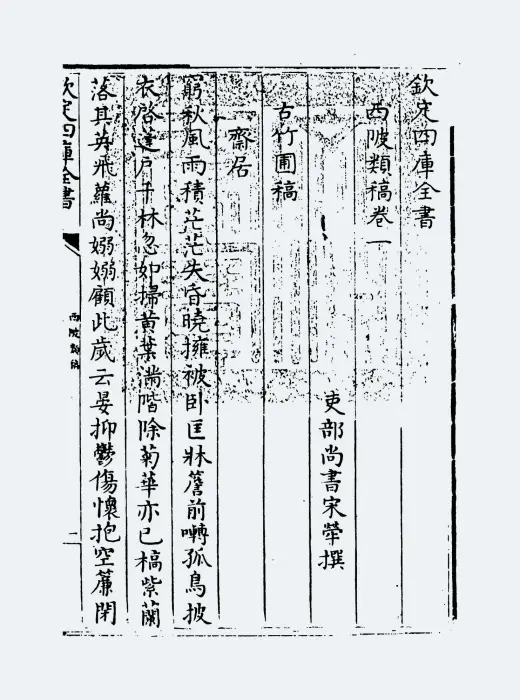 欽定四庫全書
西陂類稿卷一
吏部尚書宋犖撰
古竹圃稿
齋居
窮秋風雨積茫茫失昏曉擁被卧匡牀簷前囀孤鳥披
衣啓蓬戶千林忽如掃黄葉滿階除菊華亦已槁紫蘭
落其英飛蘿尚嫋嫋顧此歲云晏抑鬱傷懷抱空簾閉
欽定四庫全書
西陂類稿
二